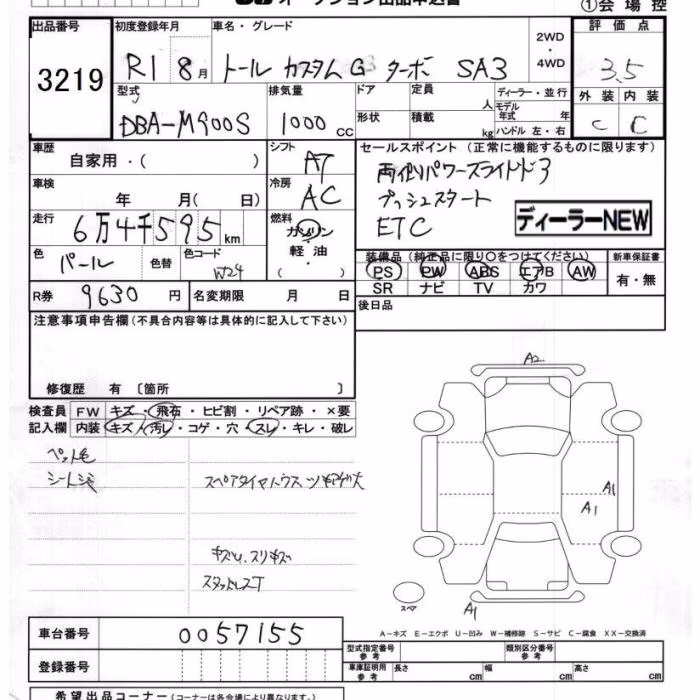 オークション出品申込書
①会場控
出品番号 初度登録年月 車名・グレード 2WD・4WD 評価点
3219 R1 8月 トール カスタムG ターボ SA3 3.5
型式 排気量 ドア 定員 人 ディーラー・並行 外装 内装
DBA-M900S 1000 CC 形状 積載 kg モデル年式 年 ハンドル 左・右 C C
車歴 自家用・( ) シフト AT セールスポイント (正常に機能するものに限ります)
車検 年 月( 日) 冷房 AC 両側パワースライドドア
プッシュスタート
走行 6万4千595km 燃料 ガソリン ETC ディーラーNEW
色 パール 色替 色コード W24 軽油・( ) 装備品 (純正品に限り○をつけてください) 新車保証書
PS PW ABS エアB AW 有・無
SR ナビ TV カワ
R券 9630円 名変期限 月 日 後日品
注意事項申告欄 (不具合内容等は具体的に記入して下さい)
修復歴 有 〔箇所 〕
検査員記入欄 FW キズ・飛石・ヒビ割・リペア跡・×要
内装 キズ・汚レ・コゲ・穴・スレ・キレ・破レ
ペット毛
シートシミ
スペアタイヤハウス
キズU、スリキズ
スタッドレスT
A2
A1
A1
スペア
A1
A-キズ E-エクボ U-凹み W-補修跡 S-サビ C-腐食 XX-交換済
車台番号 0057155 型式指定番号 参考 類別区分番号 参考
登録番号 車庫証明用 参考 長さ cm 幅 cm 高さ cm
希望出品コーナー (コーナーは各会場により異なります。)